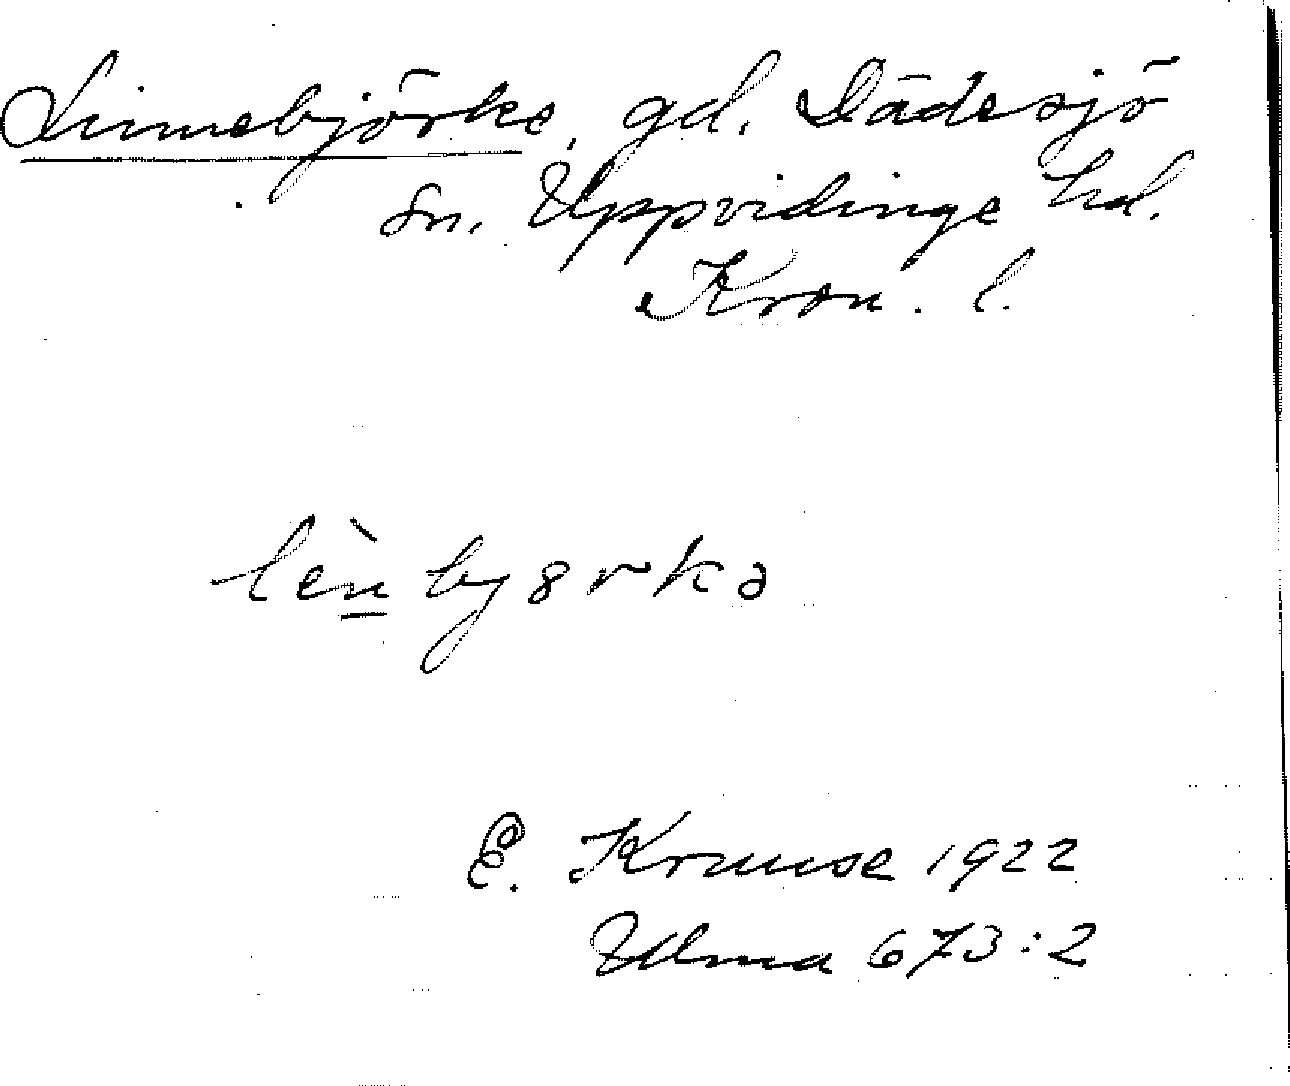 Linnebjörke, gd. Dädesjö
sn. Uppvidinge hd.
Kron. l.
lèn byörkə
E. Krause 1922
Ulma 673:2